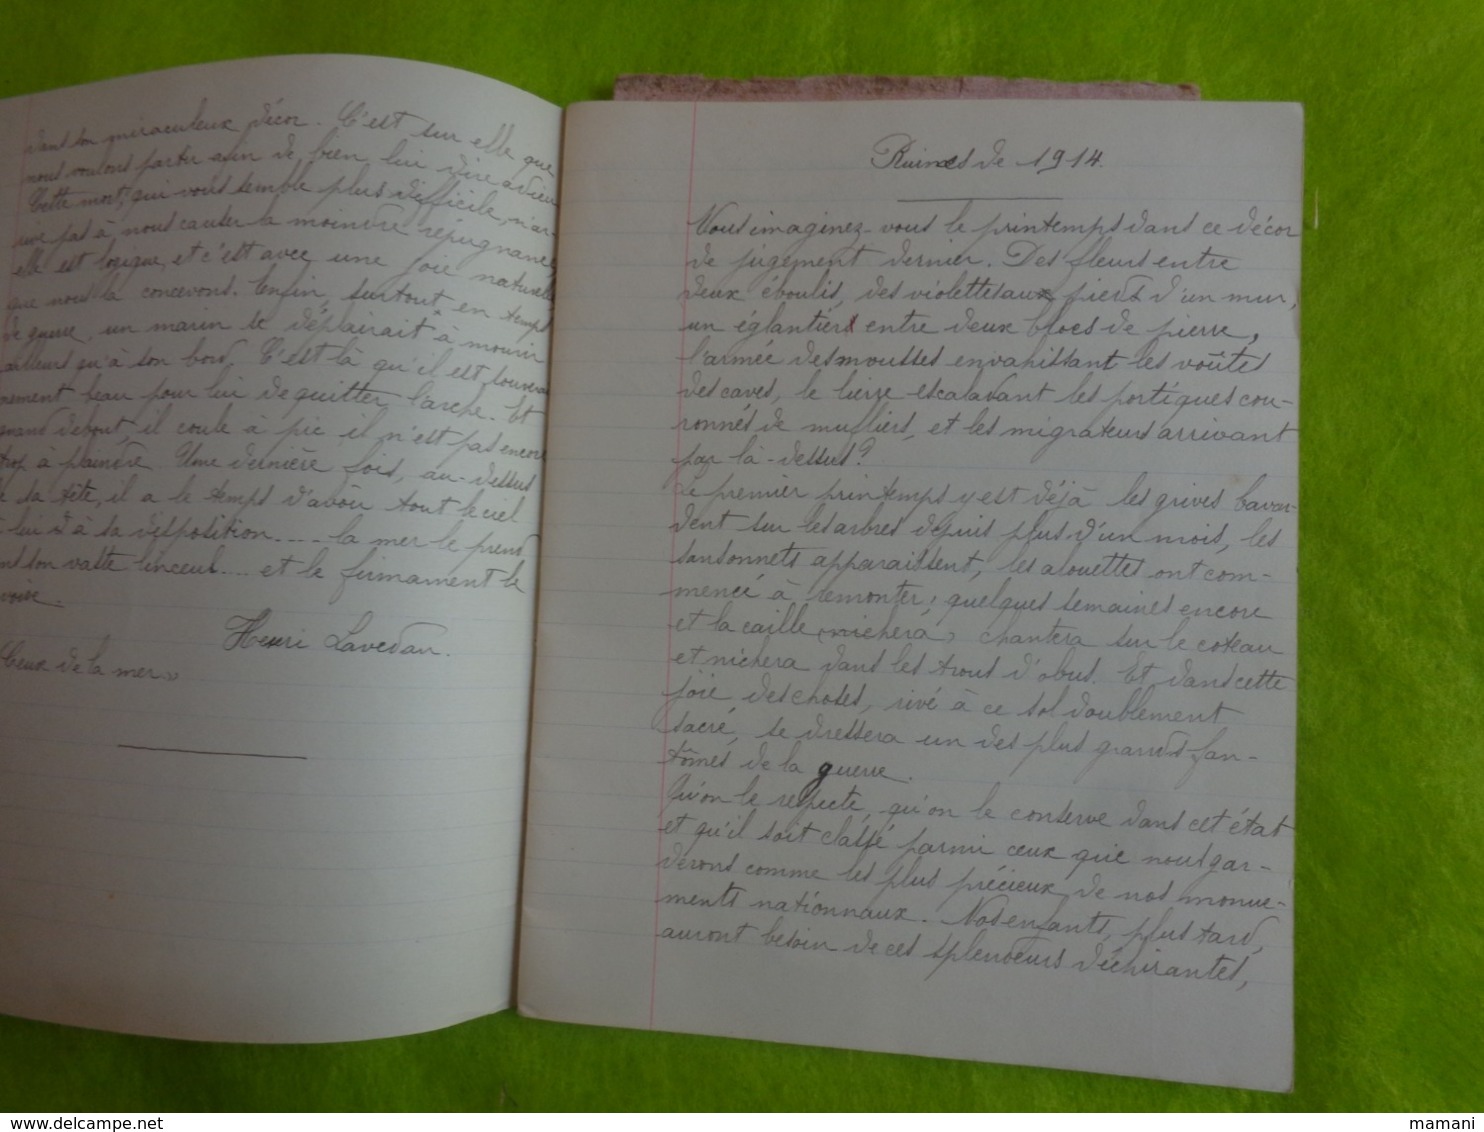 dans son miraculeux décor. C'est sur elle que
nous voulons partir afin de bien lui dire adieu
Cette mort, qui vous semble plus difficile, n'ar-
rive pas à nous causer la moindre répugnance,
elle est logique, et c'est avec une joie naturelle
que nous la concevons. Enfin, surtout en temps
de guerre, un marin se déplairait à mourir
ailleurs qu'à son bord. C'est là qu'il est souverai-
nement beau pour lui de quitter l'arche. Et
quand debout, il coule à pic il n'est pas encore
trop à plaindre. Une dernière fois, au-dessus
de sa tête, il a le temps d'avoir tout le ciel
à lui et à sa disposition.... la mer le prend
dans son vaste linceul.... et le firmament le
Henri Lavedan.
Ceux de la mer »
Ruines de 1914.
Vous imaginez-vous le printemps dans ce décor
de jugement dernier. Des fleurs entre
deux éboulis, des violettes aux pieds d'un mur,
un églantier entre deux blocs de pierre,
l'armée des mousses envahissant les voûtes
des caves, le lierre escaladant les portiques cou-
ronnés de mufliers, et les migrateurs arrivant
par là-dessus?
Le premier printemps y est déjà les grives bavar-
dent sur les arbres depuis plus d'un mois, les
sansonnets apparaissent, les alouettes ont com-
mencé à remonter; quelques semaines encore
et la caille (nichera) chantera sur le coteau
et nichera dans les trous d'obus. Et dans cette
joie des choses, rivé à ce sol doublement
sacré, se dressera un des plus grands fan-
tômes de la guerre.
Qu'on le respecte, qu'on le conserve dans cet état
et qu'il soit classé parmi ceux que nous gar-
derons comme les plus précieux de nos monu-
ments nationnaux. Nos enfants, plus tard,
auront besoin de ces splendeurs déchirantes,
www.delcampe.net
mamani